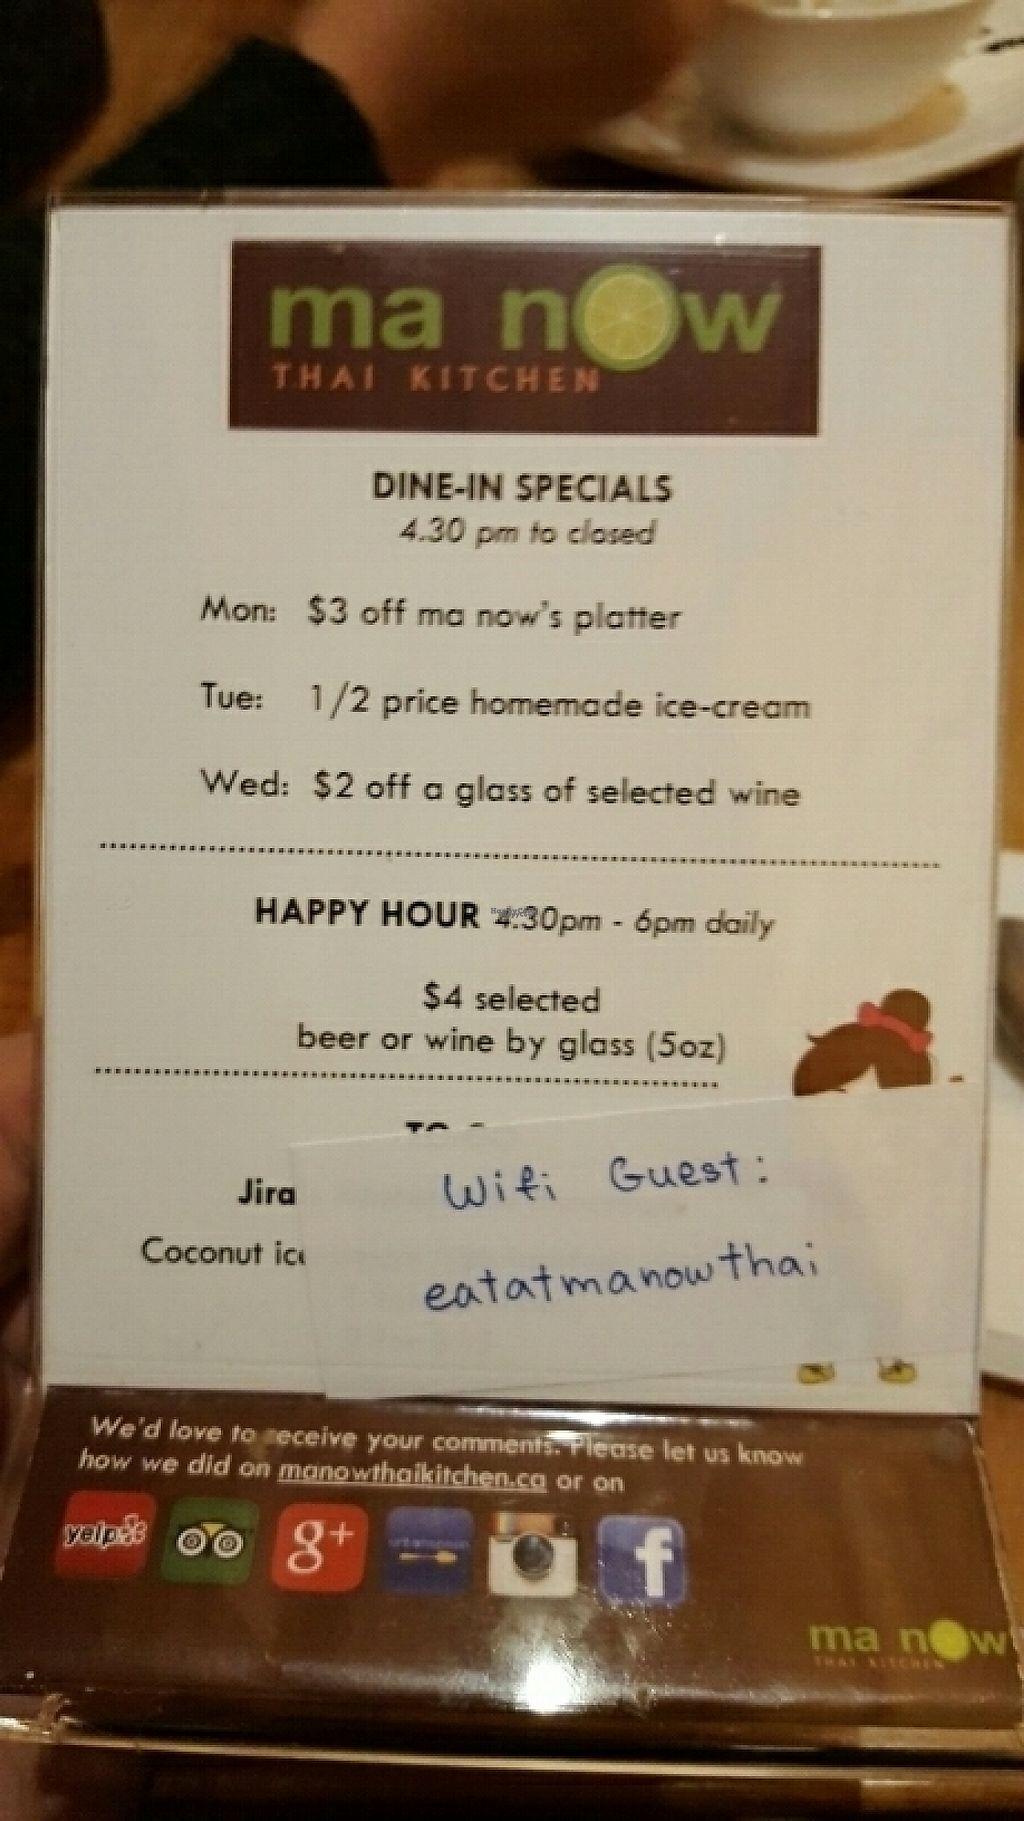 ma now
THAI KITCHEN
DINE-IN SPECIALS
4.30 pm to closed
Mon: $3 off ma now's platter
Tue: 1/2 price homemade ice-cream
Wed: $2 off a glass of selected wine
HAPPY HOUR 4.30pm - 6pm daily
$4 selected
beer or wine by glass (5oz)
Jira
Coconut
Wifi Guest:
eatatmanowthai
We'd love to receive your comments. Please let us know
how we did on manowthaikitchen.ca or on
yelp
g+
urbanspoon
f
ma now
THAI KITCHEN